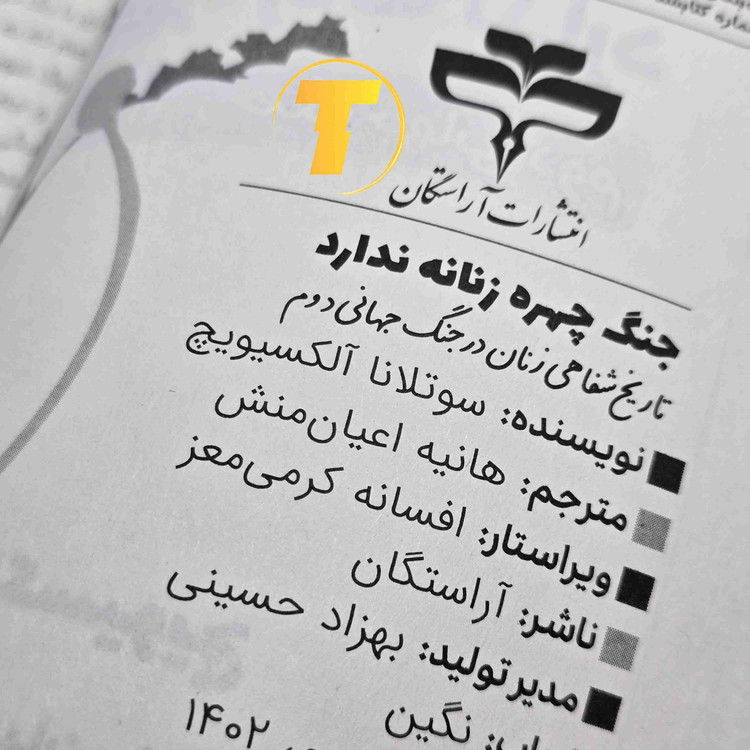 T
انتشارات آراستگان
جنگ چهره زنانه ندارد
تاریخ شفاهی زنان در جنگ جهانی دوم
نویسنده: سوتلانا آلکسیویچ
مترجم: هانیه اعیان‌منش
ویراستار: افسانه کرمی‌معز
ناشر: آراستگان
مدیر تولید: بهزاد حسینی
نگین
۱۴۰۲